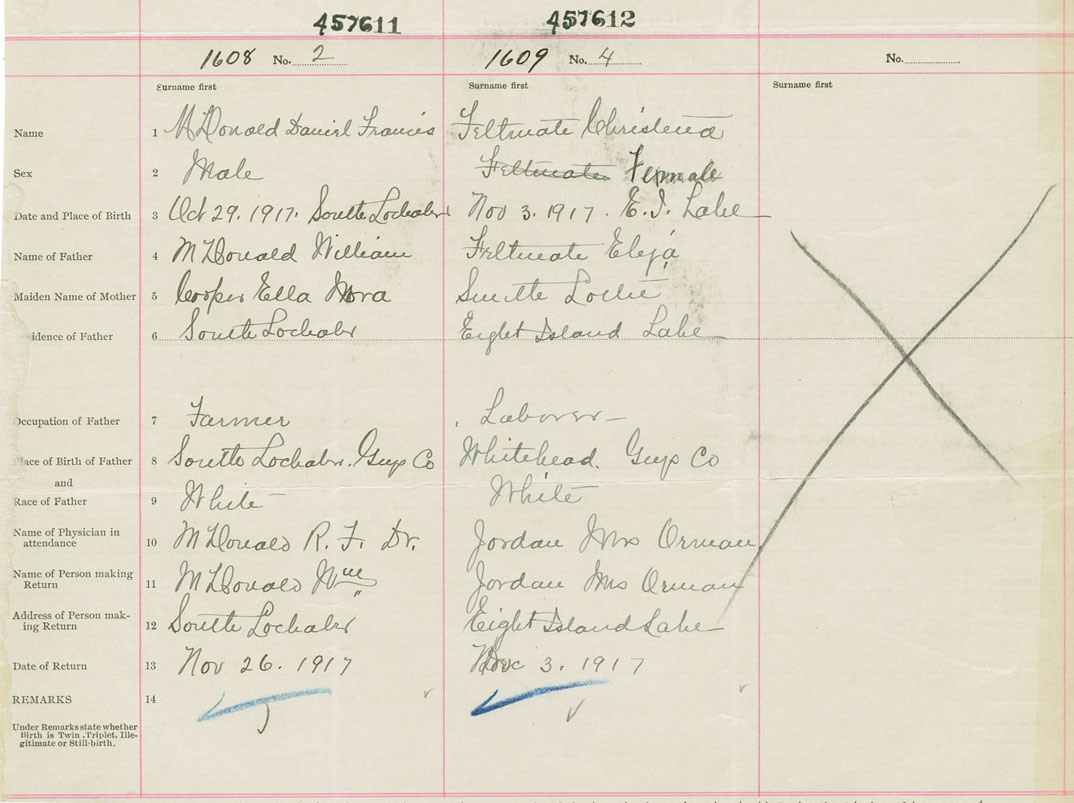 457611 457612
1608 No. 2 1609 No. 4 No.
Surname first Surname first Surname first
Name 1 McDonald Daniel Francis Feltmate Christena
Sex 2 Male Feltmate Female
Date and Place of Birth 3 Oct 29. 1917. South Lochaber Nov 3. 1917. E. I. Lake
Name of Father 4 McDonald William Feltmate Elija
Maiden Name of Mother 5 Cooper Ella Nora Smith Lottie
idence of Father 6 South Lochaber Eight Island Lake
Occupation of Father 7 Farmer Laborer
Place of Birth of Father 8 South Lochaber. Guys Co Whitehead. Guys Co
and
Race of Father 9 White White
Name of Physician in
attendance 10 McDonald R. F. Dr. Jordan Mrs Orman
Name of Person making
Return 11 McDonald Wm Jordan Mrs Orman
Address of Person mak-
ing Return 12 South Lochaber Eight Island Lake
Date of Return 13 Nov 26. 1917 3. 1917
REMARKS 14
Under Remarks state whether
Birth is Twin, Triplet, Ille-
gitimate or Still-birth.